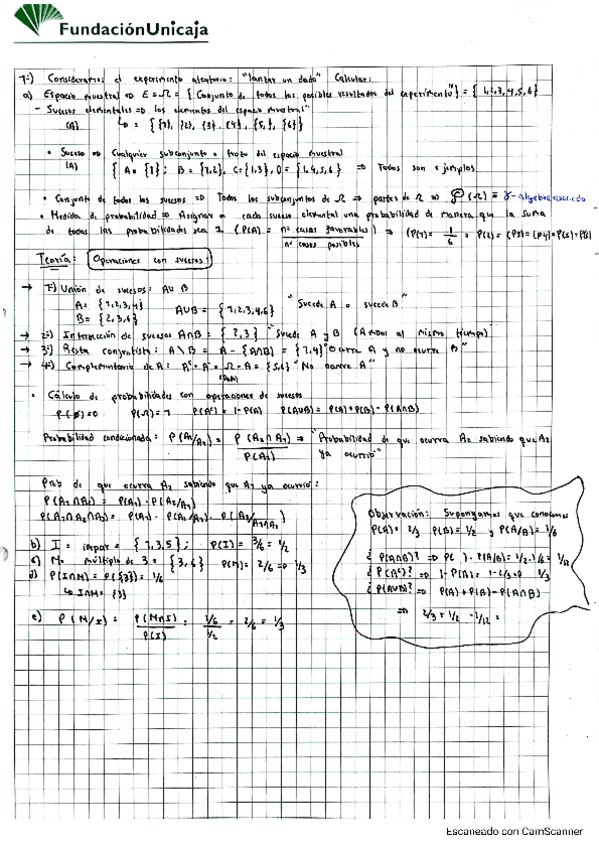 FundaciónUnicaja
1º) Consideramos el experimento aleatorio: "lanzar un dado" Calcular:
a) Espacio muestral ⇒ E = Ω = { Conjunto de todos los posibles resultados del experimento } = { 1,2,3,4,5,6 }
- Sucesos elementales ⇒ los elementos del espacio muestral"
(A) ↳ = { {1}, {2}, {3}, {4}, {5}, {6} }
• Suceso ⇒ Cualquier subconjunto o trozo del espacio muestral
(A) { A = {1} ; B = {1,2}, C = {1,3}, D = {1,4,5,6} ⇒ Todos son ejemplos
• Conjunto de todos los sucesos ⇒ Todos los subconjuntos de Ω ⇒ partes de Ω ⇒ P(Ω) =
• Medida de probabilidad ⇒ Asignar a cada suceso elemental una probabilidad de manera que la suma
de todas las probabilidades sea 1 (P(A) = nº casos favorables / nº casos posibles) ⇒ (P(1) = 1/6 = P(2) = (P3) = (P4) = P(5) = P(6)
Teoría: Operaciones con sucesos:
→ 1º) Unión de sucesos: A∪B
A = {1,2,3,4}
B = {2,3,6}
A∪B = {1,2,3,4,6} "Sucede A o sucede B"
→ 2º) Intersección de sucesos A∩B = {2,3} "Sucede A y B (A la vez al mismo tiempo)"
→ 3º) Resta conjuntista: A\B = A - (A∩B) = {1,4} "Ocurre A y no ocurre B"
→ 4º) Complementario de A: Aᶜ = A' = Ω - A = {5,6} "No ocurre A"
• Cálculo de probabilidades con operaciones de sucesos
P(∅)=0 P(Ω)=1 P(Aᶜ) = 1-P(A) P(A∪B) = P(A)+P(B)-P(A∩B)
Probabilidad condicionada: P(A₂/A₁) = P(A₂∩A₁) / P(A₁) ⇒ "Probabilidad de que ocurra A₂ sabiendo que A₁
ya ocurrió"
Prob de que ocurra A₂ sabiendo que A₁ ya ocurrió:
P(A₁∩A₂) = P(A₁)·P(A₂/A₁)
P(A₁∩A₂∩A₃) = P(A₁)·P(A₂/A₁)·P(A₃/A₁∩A₂)
b) I = impar = {1,3,5} ; P(I) = 3/6 = 1/2
c) M = múltiplo de 3 = {3,6} P(M) = 2/6 ⇒ 1/3
d) P(I∩M) = P({3}) = 1/6
↳ I∩M = {3}
e) P(M/I) = P(M∩I) / P(I) = 1/6 / 1/2 = 2/6 = 1/3
Observación: Supongamos que conocemos
P(A) = 2/3 P(B) = 1/2 y P(A/B) = 1/6
¿P(A∩B)? ⇒ P( )·P(A/B) = 1/2·1/6 = 1/12
¿P(Aᶜ)? ⇒ 1-P(A) = 1-2/3 ⇒ 1/3
¿P(A∪B)? ⇒ P(A)+P(B)-P(A∩B)
⇒ 2/3 + 1/2 - 1/12 =
Escaneado con CamScanner